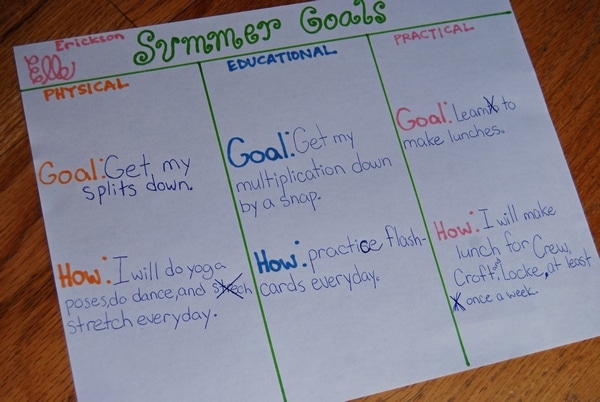 Summer Goals
Erickson
Elle
PHYSICAL
Goal: Get my
splits down.
How: I will do yoga
poses, do dance, and
stretch everyday.
EDUCATIONAL
Goal: Get my
multiplication down
by a snap.
How: practice flash-
cards everyday.
PRACTICAL
Goal: Learn to
make lunches.
How: I will make
lunch for Crew,
Croft, and Locke, at least
once a week.